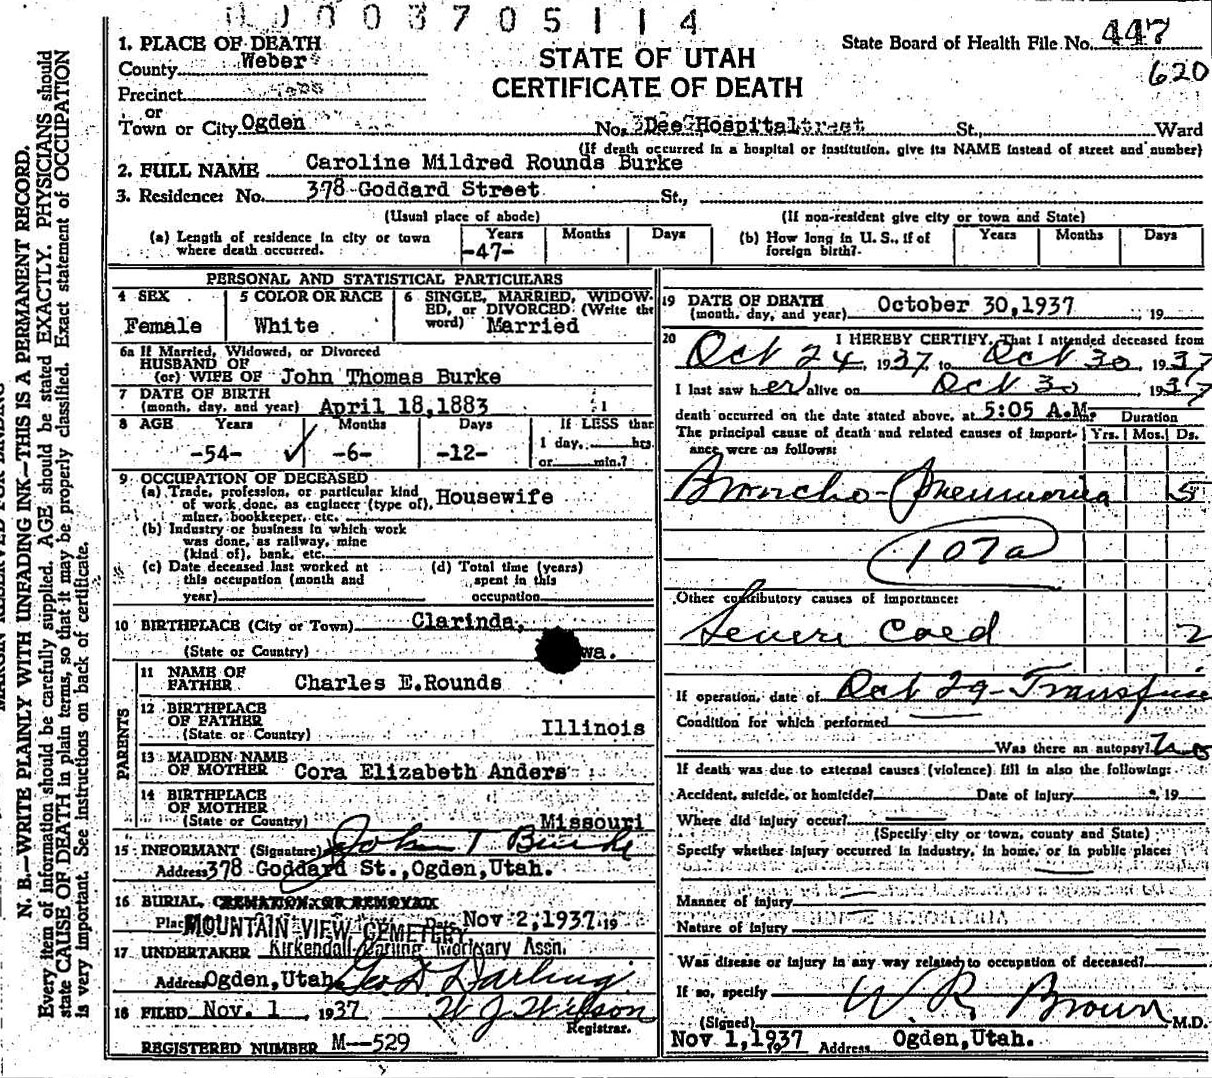 0003705114
1. PLACE OF DEATH
County Weber
Precinct
or
Town or City Ogden No. Dee Hospital Street St., Ward
(If death occurred in a hospital or institution, give its NAME instead of street and number)
STATE OF UTAH
CERTIFICATE OF DEATH
State Board of Health File No. 447
620
2. FULL NAME Caroline Mildred Rounds Burke
3. Residence: No. 378 Goddard Street St.,
(Usual place of abode) (If non-resident give city or town and State)
(a) Length of residence in city or town where death occurred. Years -47- Months Days
(b) How long in U. S., if of foreign birth?- Years Months Days
PERSONAL AND STATISTICAL PARTICULARS
4 SEX Female
5 COLOR OR RACE White
6 SINGLE, MARRIED, WIDOW-
ED, or DIVORCED (Write the
word) Married
6a If Married, Widowed, or Divorced
HUSBAND OF
(or) WIFE OF John Thomas Burke
7 DATE OF BIRTH
(month, day, and year) April 18,1883
8 AGE Years -54- ✓ Months -6- Days -12- If LESS than
1 day, hrs.
or min.?
9 OCCUPATION OF DECEASED
(a) Trade, profession, or particular kind
of work done, as engineer (type of), Housewife
miner, bookkeeper, etc.
(b) Industry or business in which work
was done, as railway, mine
(kind of), bank, etc.
(c) Date deceased last worked at
this occupation (month and
year)
(d) Total time (years)
spent in this
occupation
10 BIRTHPLACE (City or Town) Clarinda,
(State or Country) wa.
PARENTS
11 NAME OF
FATHER Charles E.Rounds
12 BIRTHPLACE
OF FATHER
(State or Country) Illinois
13 MAIDEN NAME
OF MOTHER Cora Elizabeth Anders
14 BIRTHPLACE
OF MOTHER
(State or Country) Missouri
15 INFORMANT (Signature) John T Burke
Address 378 Goddard St.,Ogden,Utah.
16 BURIAL, CREMATION OR REMOVAL
Place MOUNTAIN VIEW CEMETERY Date Nov 2,1937 19
17 UNDERTAKER Kirkendall-Darling Mortuary Assn.
Address Ogden,Utah Geo D Darling
18 FILED Nov. 1, 1937 W J Wilson
Registrar.
REGISTERED NUMBER M--529
19 DATE OF DEATH
(month, day, and year) October 30,1937, 19
20 I HEREBY CERTIFY, That I attended deceased from
Oct 24, 1937, to Oct 30, 1937
I last saw her alive on Oct 30, 1937
death occurred on the date stated above, at 5:05 A.M. Duration
The principal cause of death and related causes of import-
ance were as follows: Yrs. Mos. Ds.
Broncho-Pneumonia 5
107a
Other contributory causes of importance:
Severe Cold 2
If operation, date of Oct 29-Transfuse
Condition for which performed
Was there an autopsy? No
If death was due to external causes (violence) fill in also the following:
Accident, suicide, or homicide? Date of injury , 19
Where did injury occur?
(Specify city or town, county and State)
Specify whether injury occurred in industry, in home, or in public place:
Manner of injury
Nature of injury
Was disease or injury in any way related to occupation of deceased?
If so, specify
(Signed) W. R. Brown M.D.
Nov 1,1937 Address Ogden,Utah.
N. B.—WRITE PLAINLY WITH UNFADING INK—THIS IS A PERMANENT RECORD.
Every item of information should be carefully supplied. AGE should be stated EXACTLY. PHYSICIANS should
state CAUSE OF DEATH in plain terms, so that it may be properly classified. Exact statement of OCCUPATION
is very important. See instructions on back of certificate.